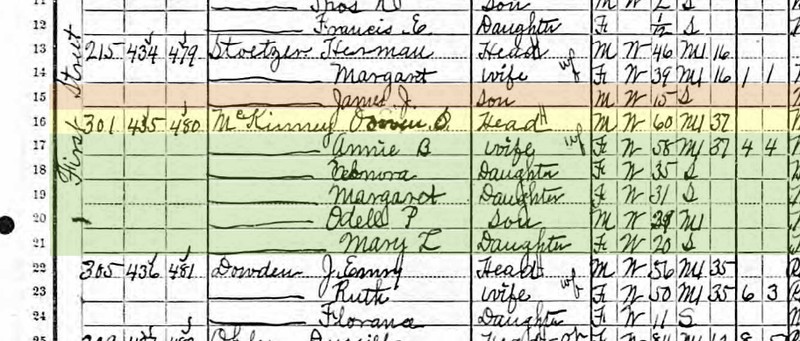 Thos
12 Francis E. Daughter F 1/12 S
13 215 434 479 Stoetzer Herman Head M W 46 M1 16
14 Margaret Wife F W 39 M1 16 1 1
15 James J. Son M W 15 S
16 301 435 480 McKinney O Head M W 60 M1 37
17 Annie B Wife F W 58 M1 37 4 4
18 Daughter F W 35 S
19 Margaret Daughter F W 31 S
20 Odell P Son M W M1
21 Mary L Daughter F W 20 S
22 305 436 481 Dowden J. Emmy Head M W 56 M1 35
23 Ruth Wife F W 50 M1 35 6 3
24 Daughter F W 11 S
First Street